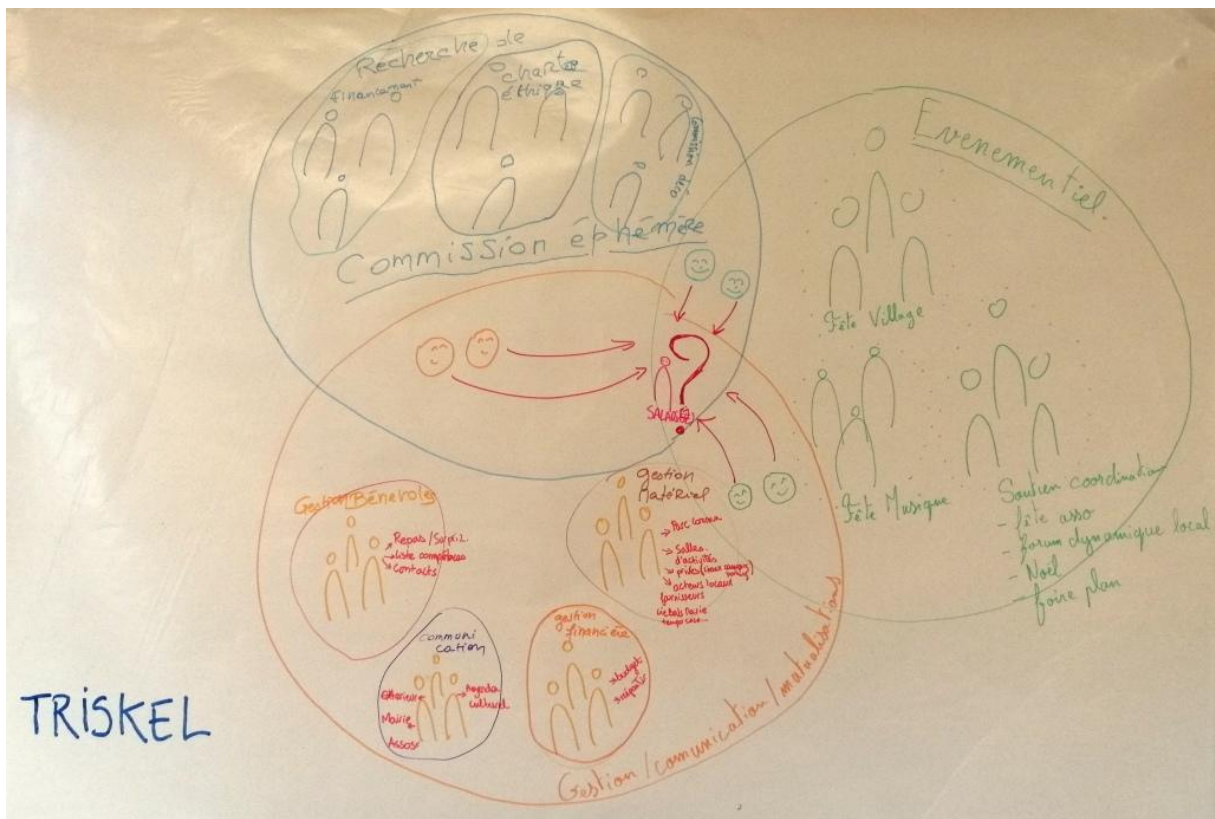 Recherche de
financement
charte
éthique
Commission déco
Commission éphémère
Evenementiel
Fête Village
Fête Musique
Soutien coordination
- fête asso
- forum dynamique local
- Noël
- foire plan
?
Gestion Bénévoles
Repas/
liste compétences
contacts
gestion
Matériel
Salles
d'activités
acteurs locaux
fournisseurs
communi
cation
Mairie
Assos
Agenda
culturel
gestion
financière
budget
Gestion/comunication/mutualisations
TRiSKEL